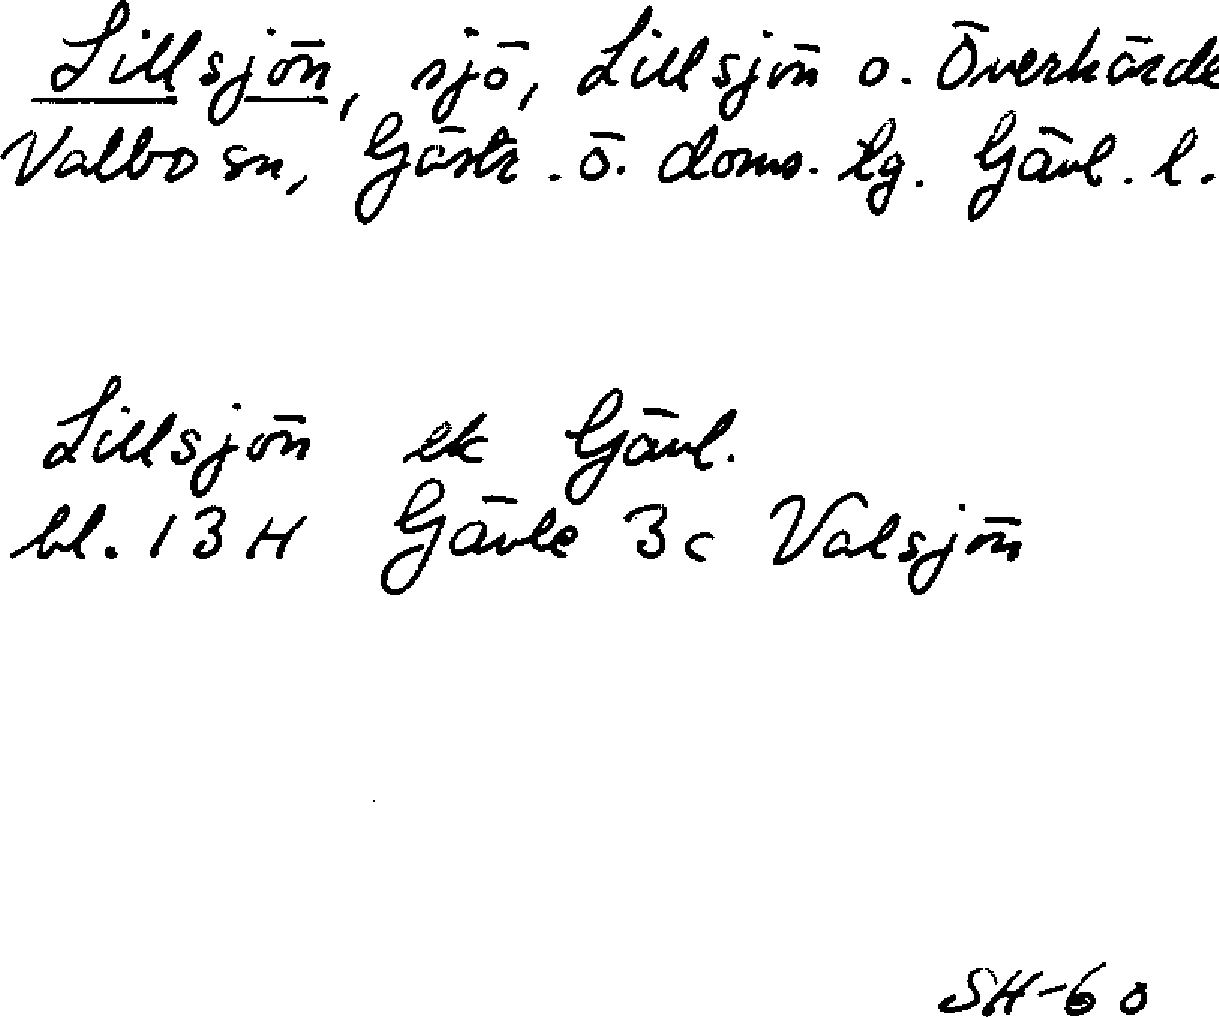 Lillsjön, sjö, Lillsjön o. Överhärde
Valbo sn, Gästr. ö. doms. lg. Gävl. l.
Lillsjön ek Gävl.
bl. 13H Gävle 3c Valsjön
SH-60